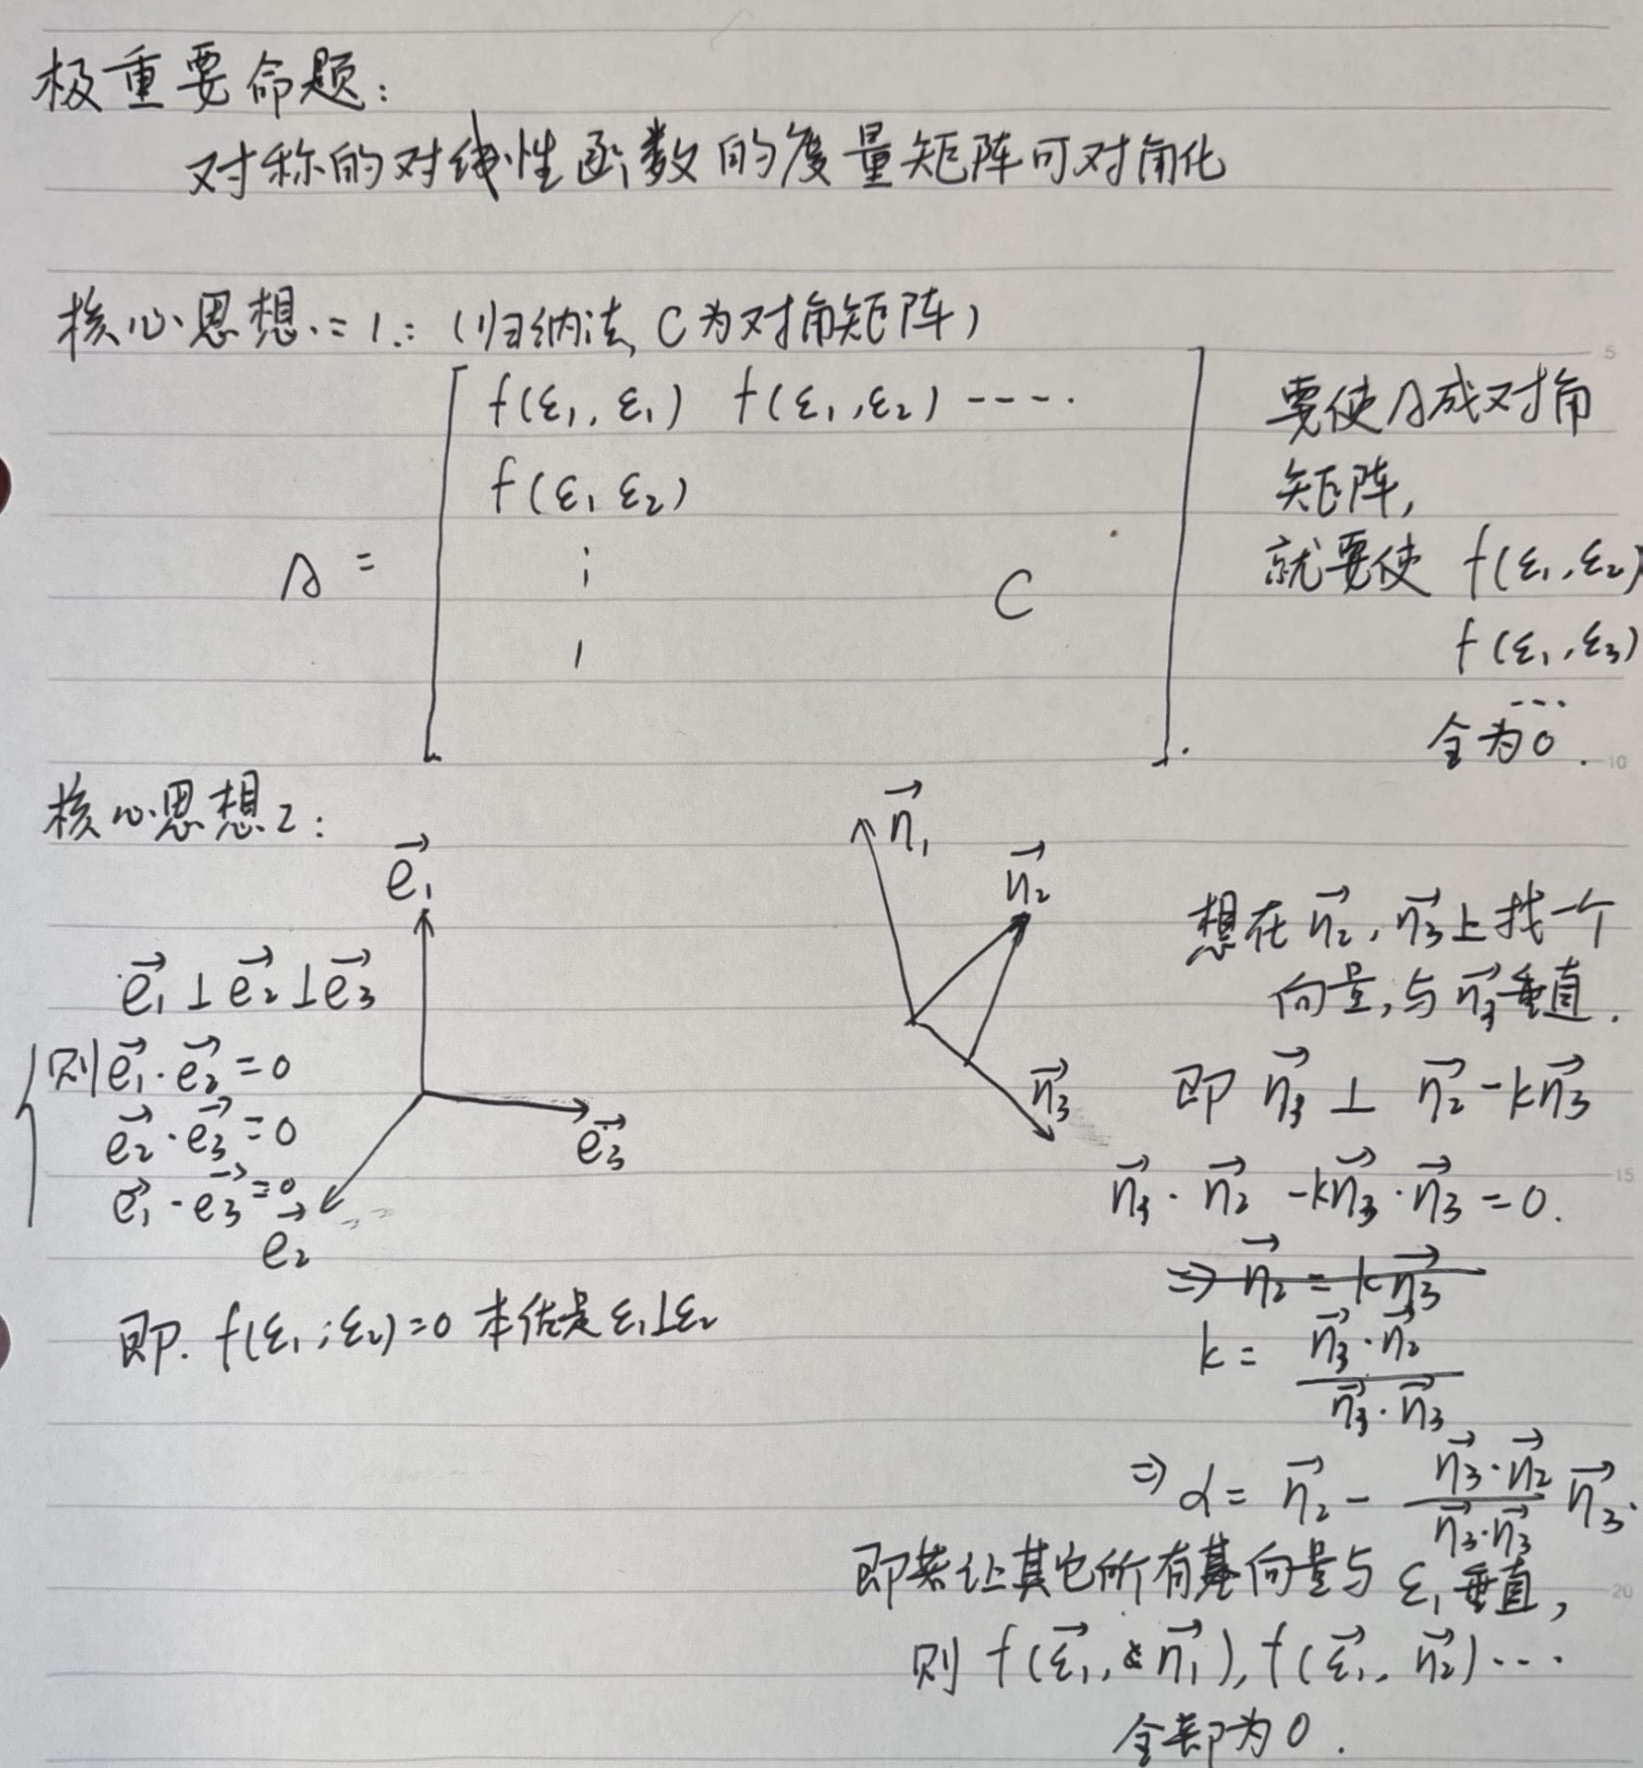 极重要命题：
对称的对线性函数的度量矩阵可对角化
核心思想.=1.：（归纳法, C为对角矩阵）
A = [ f(ε₁, ε₁) f(ε₁, ε₂) ----.
f(ε₁ ε₂)
C ]
要使A成对角
矩阵,
就要使 f(ε₁, ε₂)
f(ε₁, ε₃)
...
全为0.
核心思想2：
e₁⃗
e₁⃗ ⊥ e₂⃗ ⊥ e₃⃗
则 e₁⃗·e₂⃗ = 0
e₂⃗·e₃⃗ = 0
e₁⃗·e₃⃗ = 0
e₃⃗
e₂⃗
即. f(ε₁; ε₂)=0 本质是 ε₁⊥ε₂
n₁⃗
n₂⃗
n₃⃗
想在 n₂⃗, n₃⃗ 上找一个
向量, 与 n₃⃗ 垂直.
即 n₃⃗ ⊥ n₂⃗ - kn₃⃗
n₃⃗ · n₂⃗ - kn₃⃗ · n₃⃗ = 0.
⇒ n₂⃗ = kn₃⃗
k = (n₃⃗·n₂⃗)/(n₃⃗·n₃⃗)
⇒ α = n₂⃗ - (n₃⃗·n₂⃗)/(n₃⃗·n₃⃗) n₃⃗.
即若让其它所有基向量与 ε₁ 垂直,
则 f(ε₁⃗, n₁⃗), f(ε₁⃗, n₂⃗)...
全部为0.
5
10
15
20